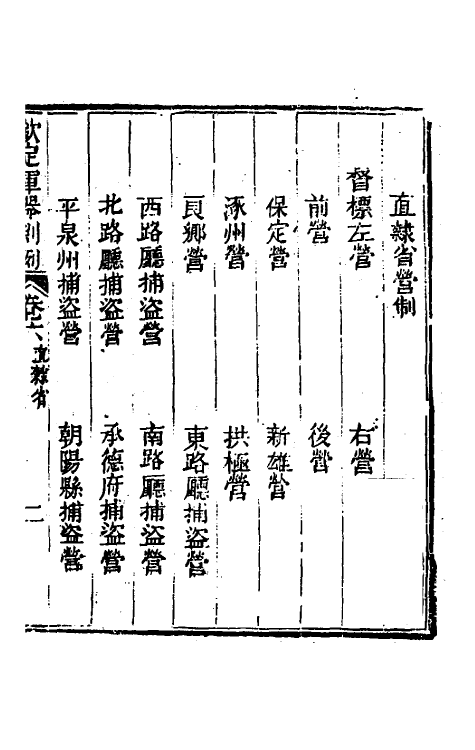 直隸省營制
督標左營　右營
前營　後營
保定營　新雄營
涿州營　拱極營
良鄉營　東路廳捕盜營
西路廳捕盜營　南路廳捕盜營
北路廳捕盜營　承德府捕盜營
平泉州捕盜營　朝陽縣捕盜營
欽定軍器則例　卷六　直隸省　二